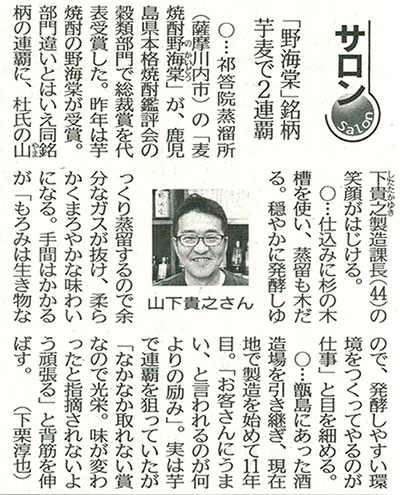 サロン
Salon
「野海棠」銘柄
芋麦で2連覇
○…祁答院蒸溜所
（薩摩川内市）の「麦
焼酎野海棠」が、鹿児
のかいどう
島県本格焼酎鑑評会の
穀類部門で総裁賞を代
表受賞した。昨年は芋
焼酎の野海棠が受賞。
部門違いとはいえ同銘
柄の連覇に、杜氏の山
やま
下貴之製造課長（44）の
したたかゆき
笑顔がはじける。
○…仕込みに杉の木
槽を使い、蒸留も木だ
る。穏やかに発酵しゆ
っくり蒸留するので余
分なガスが抜け、柔ら
かくまろやかな味わい
になる。手間はかかる
が「もろみは生き物な
山下貴之さん
ので、発酵しやすい環
境をつくってやるのが
仕事」と目を細める。
○…甑島にあった酒
造場を引き継ぎ、現在
地で製造を始めて11年
目。「お客さんにうま
い、と言われるのが何
よりの励み」。実は芋
で連覇を狙っていたが
「なかなか取れない賞
なので光栄。味が変わ
ったと指摘されないよ
う頑張る」と背筋を伸
ばす。（下栗淳也）